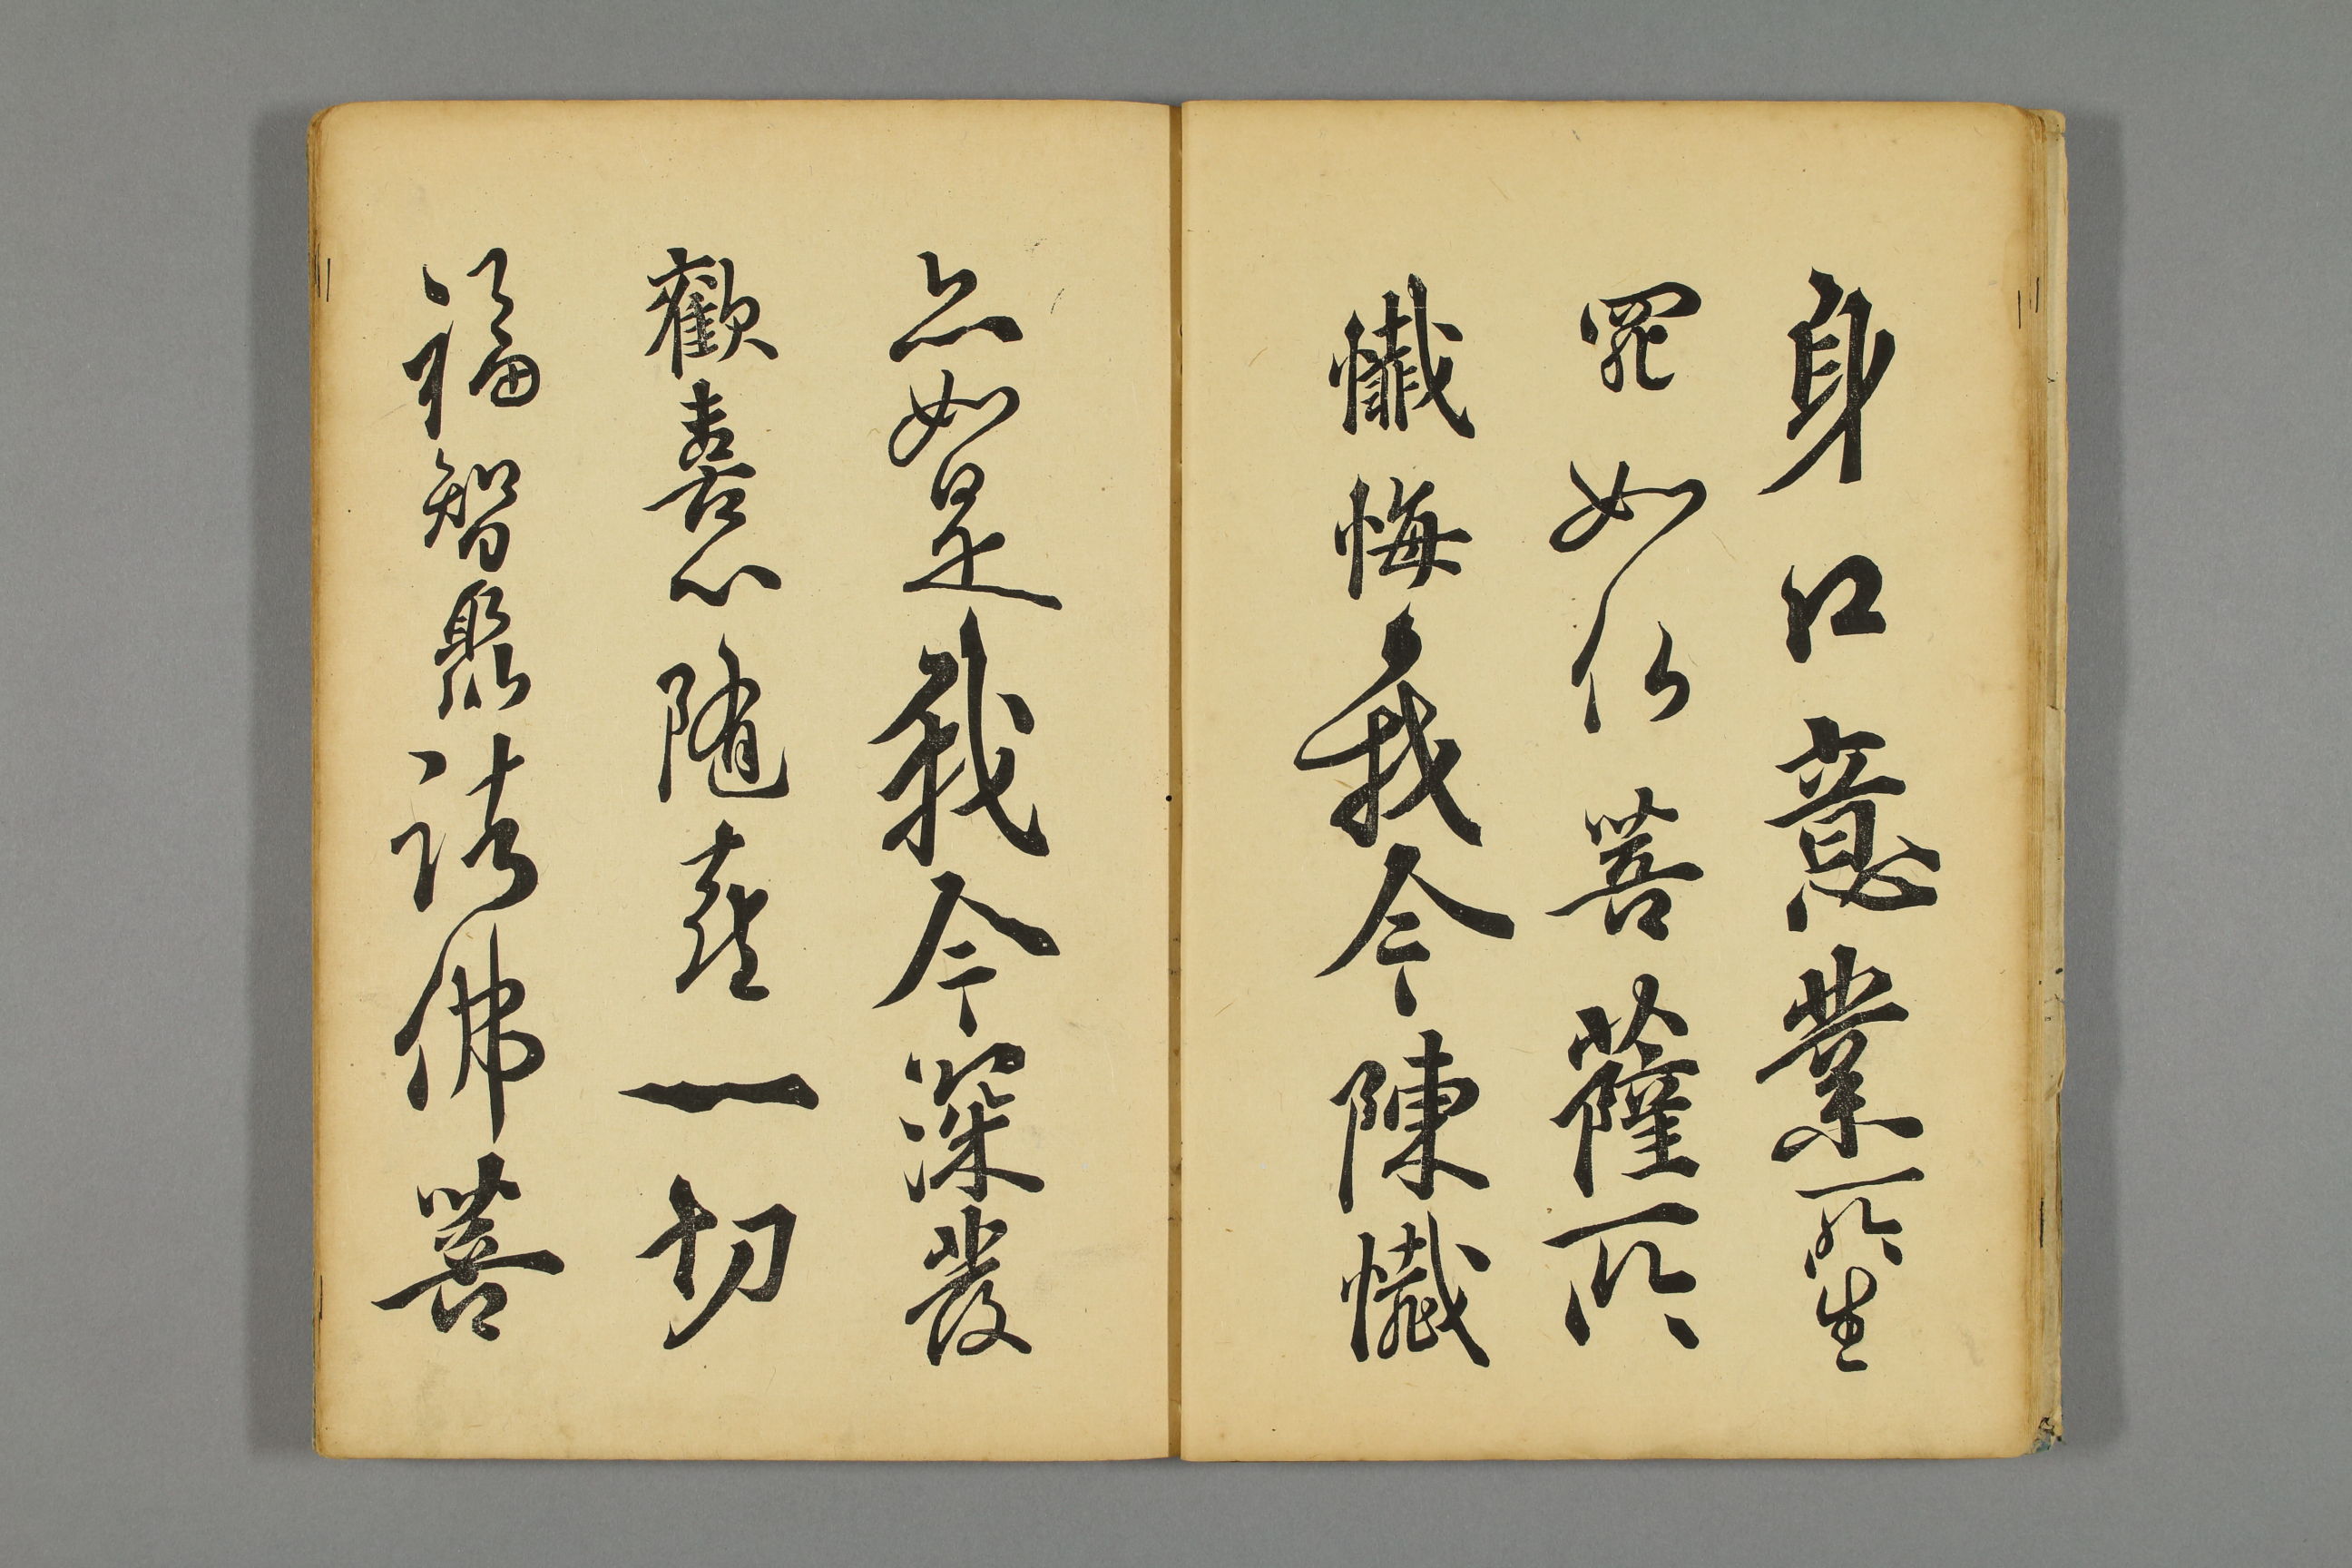 身口意業所生
罪如仏菩薩所
懺悔我今陳懺
亦如是我今深發
歡喜心隨喜一切
福智聚諸佛菩